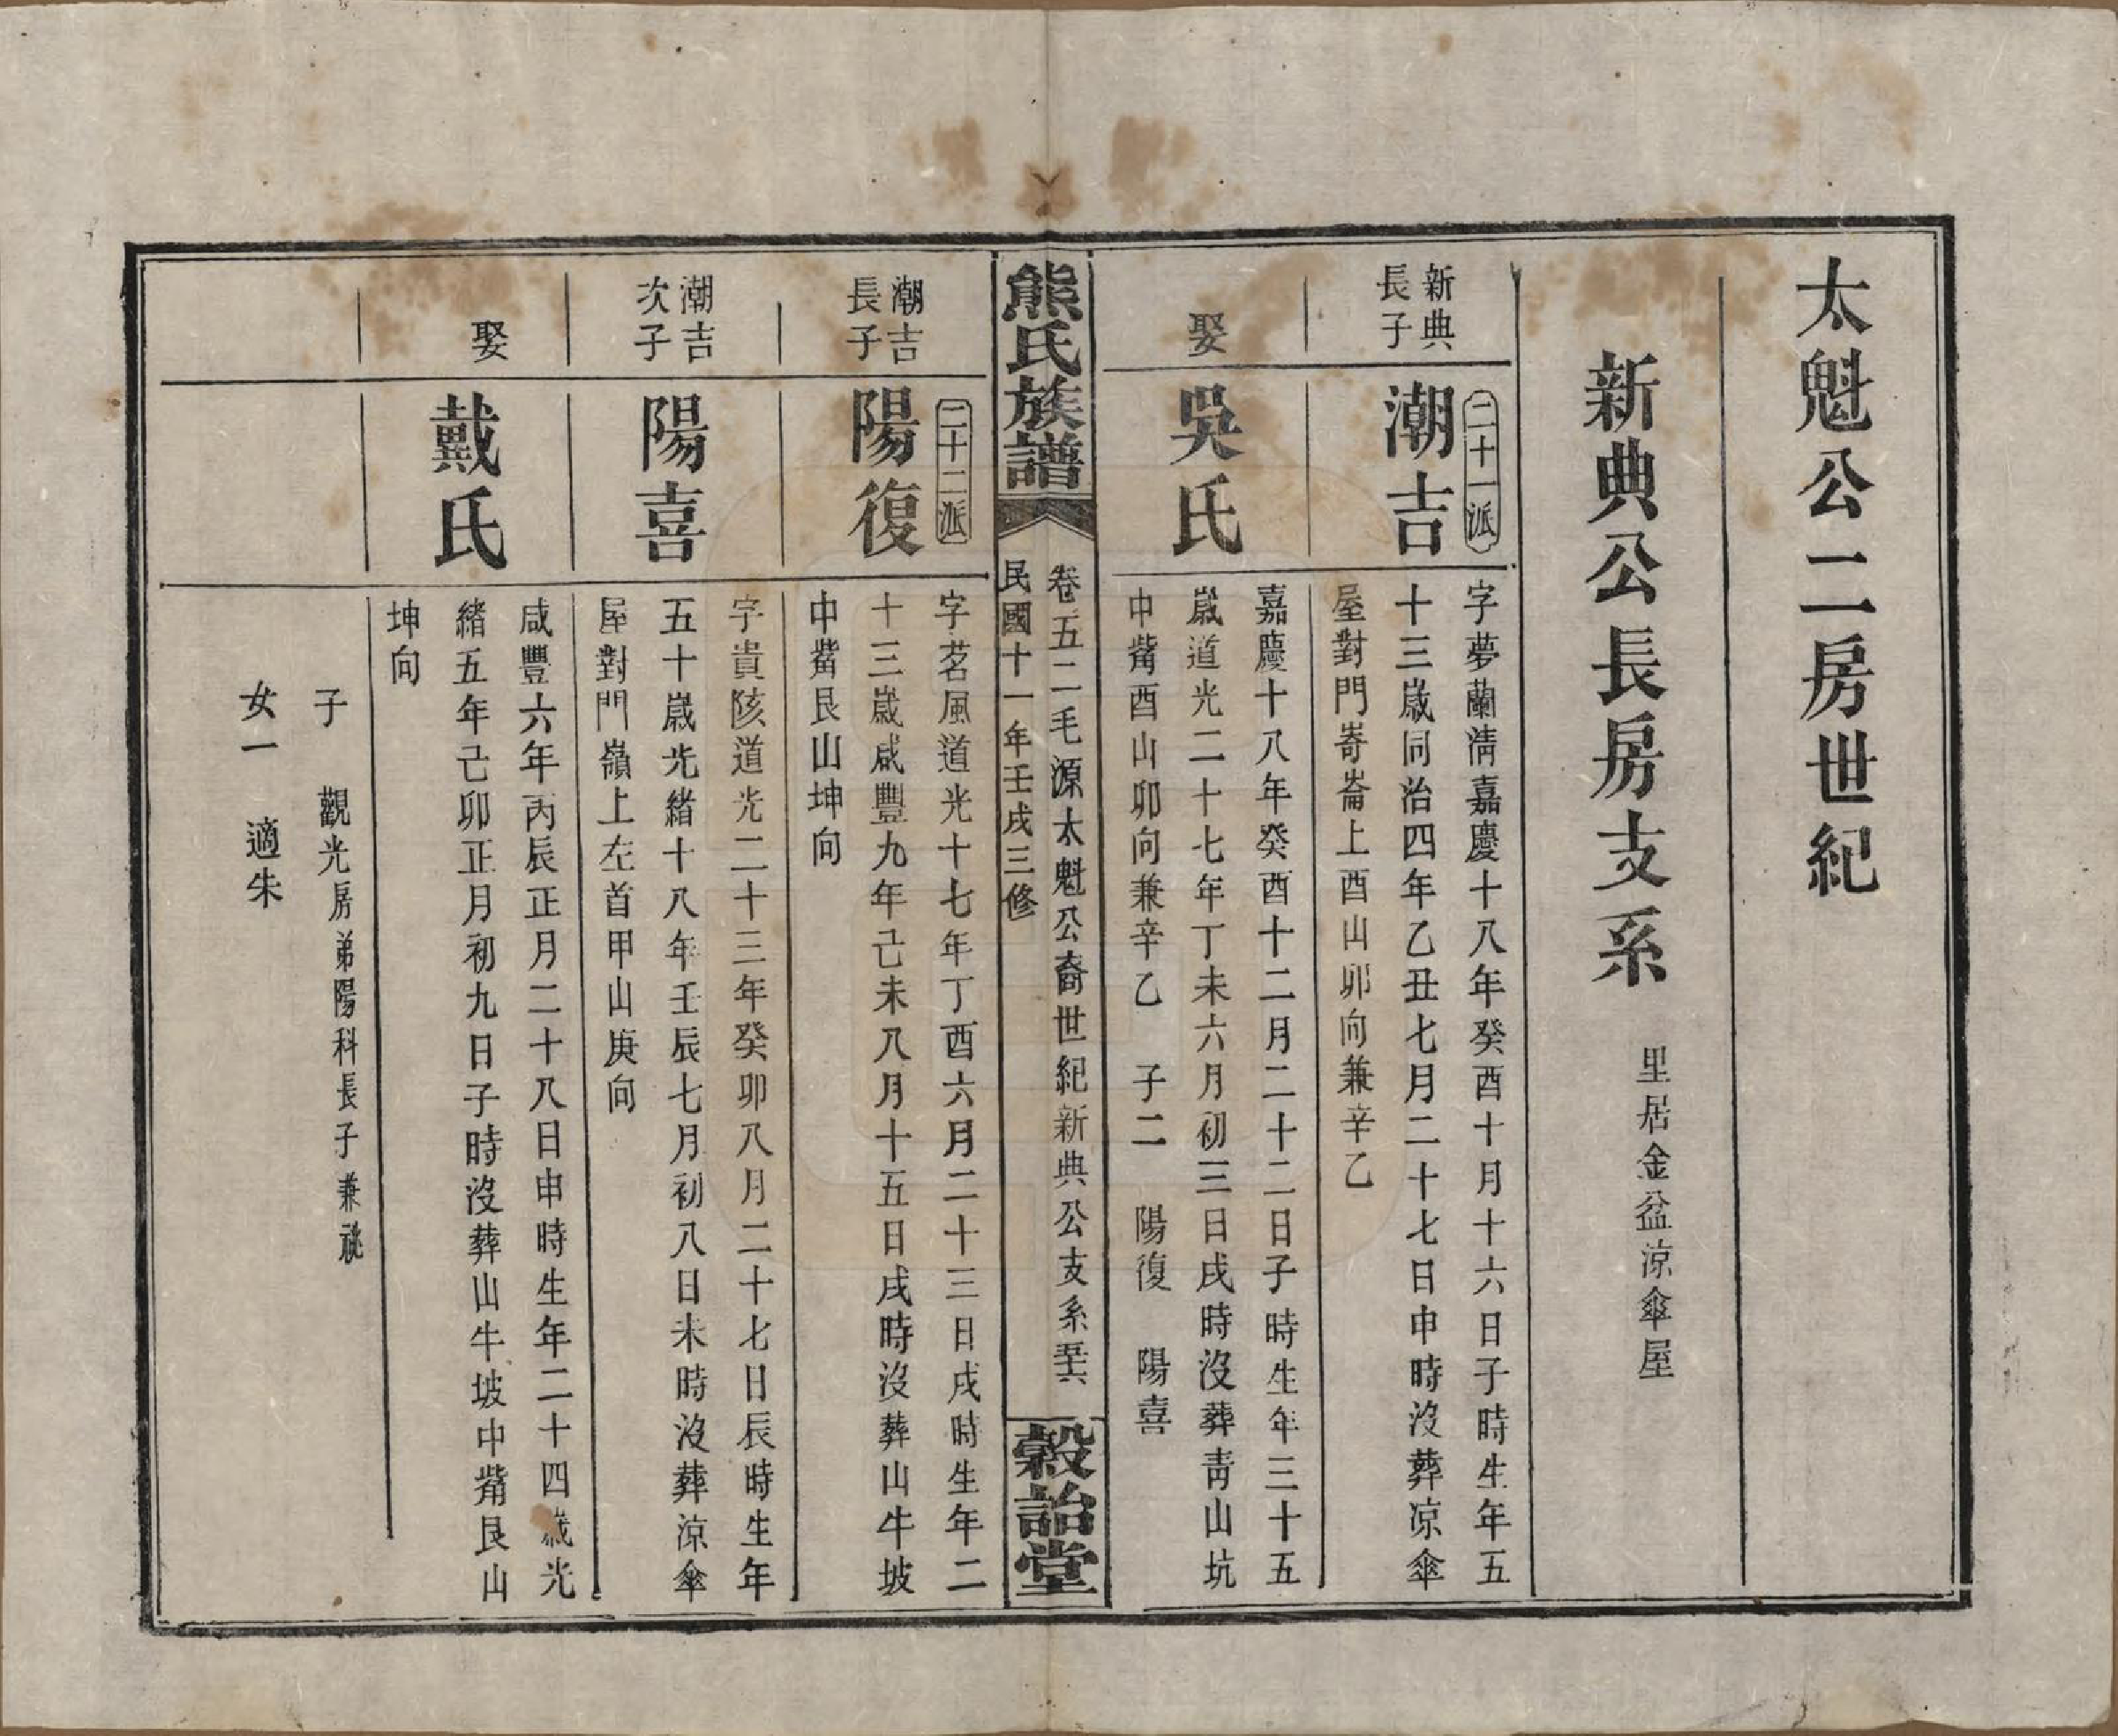 太魁公二房世紀
新典公長房支系 里居金盆涼傘屋
新典長子
二十一派
潮吉
字夢蘭淸嘉慶十八年癸酉十月十六日子時生年五
十三歲同治四年乙丑七月二十七日申時沒葬凉傘
屋對門嵜崙上酉山卯向兼辛乙
娶
吳氏
嘉慶十八年癸酉十二月二十二日子時生年三十五
歲道光二十七年丁未六月初三日戌時沒葬靑山坑
中觜酉山卯向兼辛乙 子二 陽復 陽喜
熊氏族譜
卷五二毛源太魁公裔世紀新典公支系
民國十一年壬戌三修
穀詒堂
潮吉長子
二十二派
陽復
字茗風道光十七年丁酉六月二十三日戌時生年二
十三歲咸豐九年己未八月十五日戌時沒葬山牛坡
中觜艮山坤向
潮吉次子
陽喜
字貴陔道光二十三年癸卯八月二十七日辰時生年
五十歲光緒十八年壬辰七月初八日未時沒葬涼傘
屋對門嶺上左首甲山庚向
娶
戴氏
咸豐六年丙辰正月二十八日申時生年二十四歲光
緒五年己卯正月初九日子時沒葬山牛坡中觜艮山
坤向
子 觀光房弟陽科長子兼祧
女一 適朱